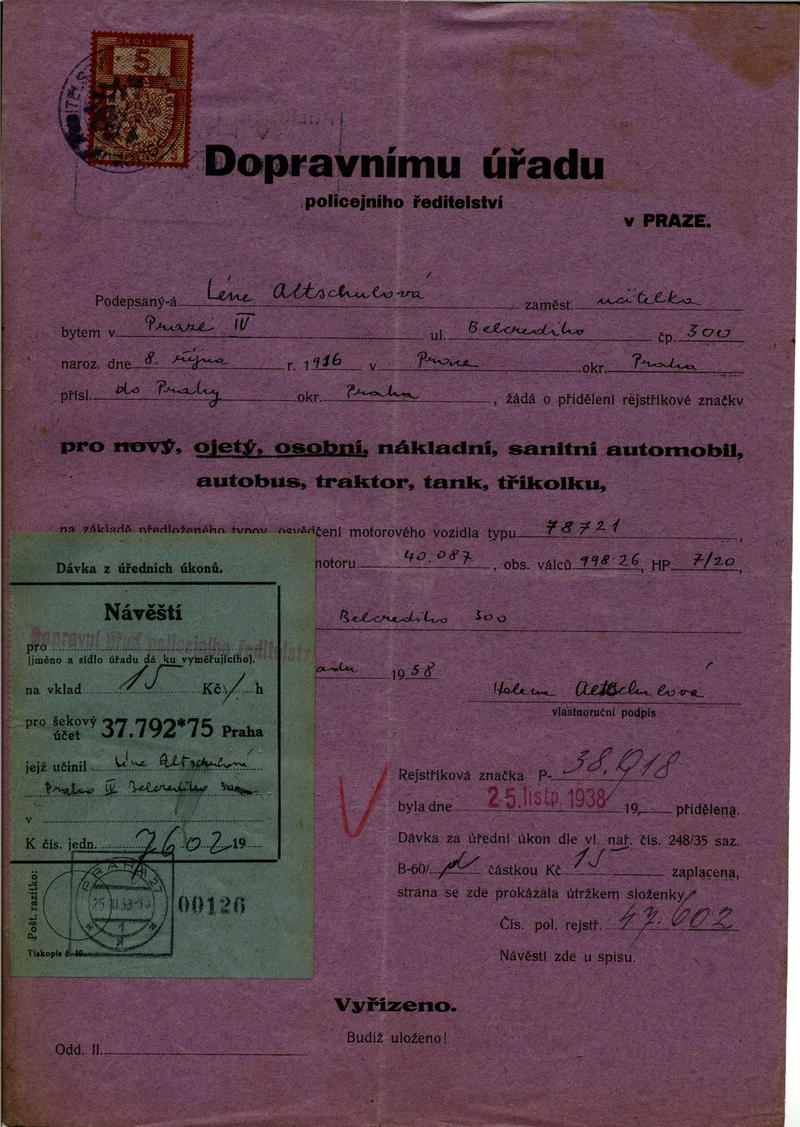 5
Dopravnímu úřadu
policejního ředitelství
v PRAZE.
Podepsaný-á Léne Altschulová zaměst. učitelka
bytem v Praze IV ul. Belcrediho čp. 300
naroz. dne 8. října r. 1916 v Praze okr. Praha
přísl. do Prahy okr. Praha, žádá o přidělení rejstříkové značky
pro nový, ojetý, osobní, nákladní, sanitní automobil,
autobus, traktor, tank, tříkolku,
na základě předloženého typov. osvědčení motorového vozidla typu 78721,
motoru 40.087, obs. válců 998·26, HP 7/20,
Belcrediho 300
1958
Helena Altschulová
vlastnoruční podpis
Rejstříková značka P- 38.918
byla dne 25. listp. 1938 19 přidělena.
Dávka za úřední úkon dle vl. nař. čís. 248/35 saz.
B-60/ částkou Kč 15 zaplacena,
strana se zde prokázala útržkem složenky
Čís. pol. rejstř. 47.602
Návěstí zde u spisu.
Vyřízeno.
Budiž uloženo!
Odd. II.
Dávka z úředních úkonů.
Návěští
pro Dopravní úřad policejního ředitelství
(jméno a sídlo úřadu dá ku vyměřujícího).
na vklad 15 Kč h
pro šekový účet 37.792*75 Praha
jejž učinil Léne Altschulová
Praha IV Belcrediho
v
K čís. jedn. 7602 19
Pošt. razítko:
PRAHA 27
25 XI 38
1
00126
Tiskopis č.